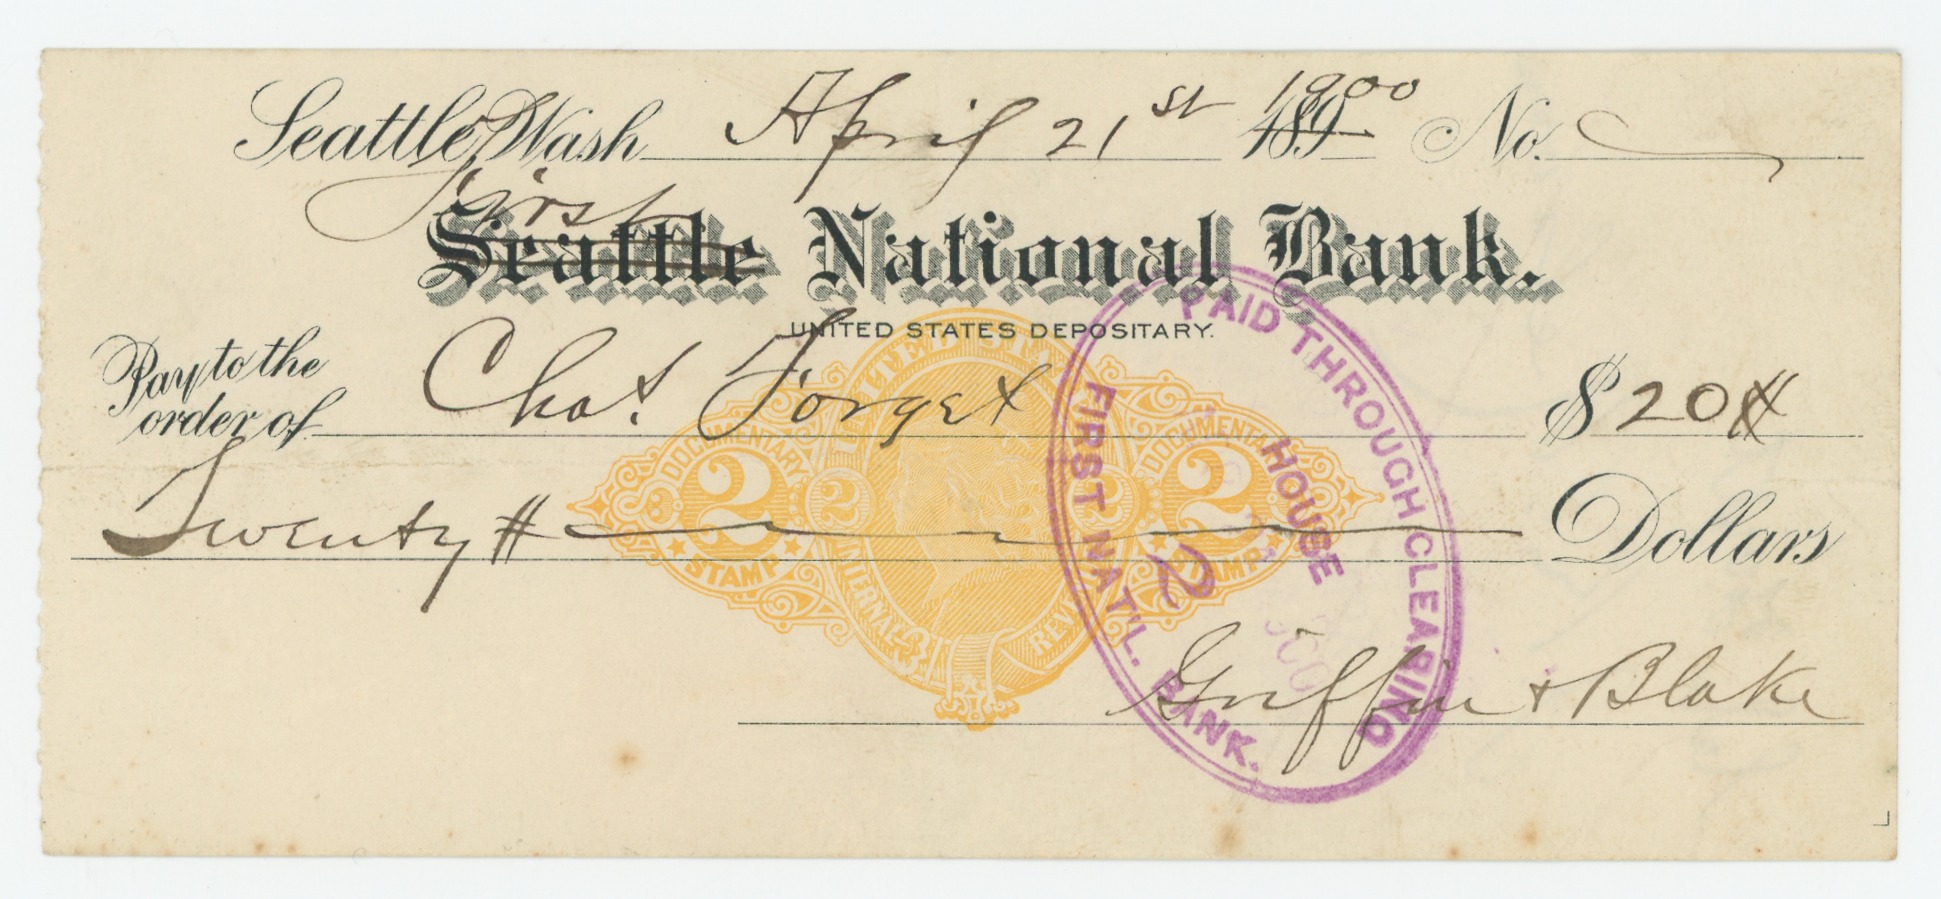 Seattle, Wash. April 21st 1900 189 No.
First
Seattle National Bank.
UNITED STATES DEPOSITARY.
Pay to the order of Chas. Forget $20
Twenty Dollars
UNITED STA
DOCUMENTARY 2 STAMP
DOCUMENTARY 2 STAMP
2
2
INTERNAL REV
PAID THROUGH CLEARING HOUSE
2
FIRST NAT'L. BANK.
Griffin & Blake